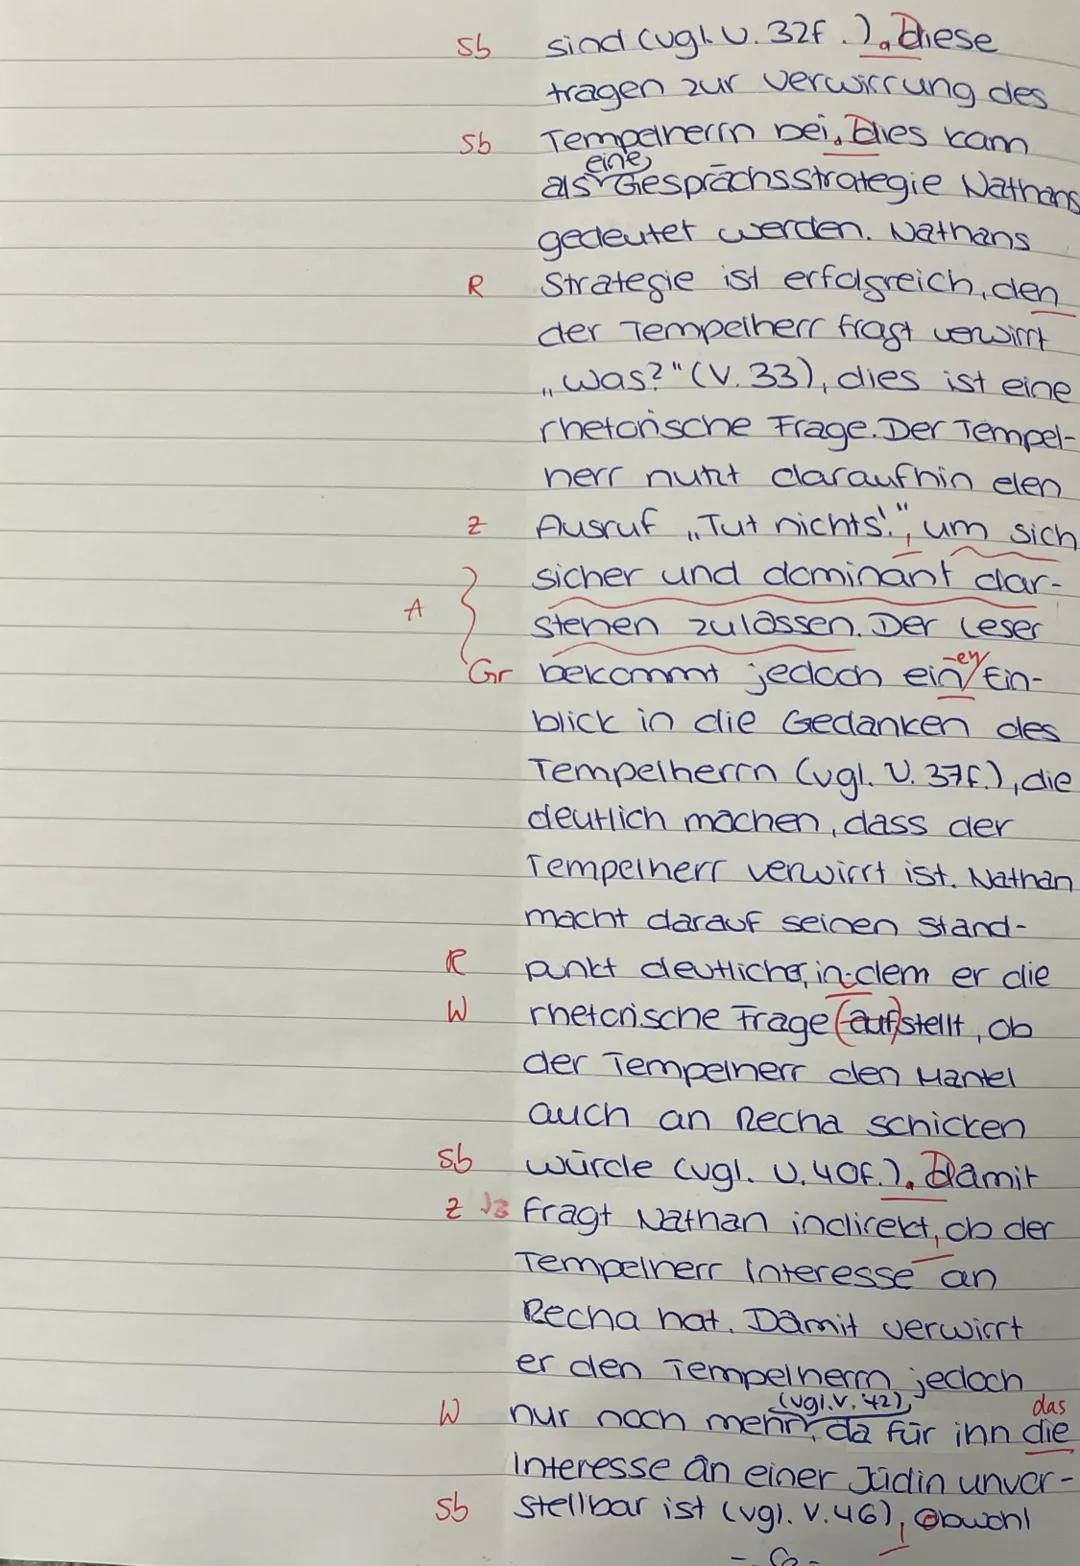 Sb sind (vgl. V. 32f.). Diese
tragen zur Verwirrung des
Sb Tempelherrn bei. Dies kann
eine
als Gesprächsstrategie Nathans
gedeutet werden. Nathans
R Strategie ist erfolgreich, den
der Tempelherr fragt verwirrt
„Was?" (V. 33), dies ist eine
rhetorische Frage. Der Tempel-
herr nutzt daraufhin den
Z Ausruf „Tut nichts!", um sich
sicher und dominant dar-
A stehen zulassen. Der Leser
-en
Gr bekommt jedoch ein Ein-
blick in die Gedanken des
Tempelherrn (vgl. V. 37f.), die
deutlich machen, dass der
Tempelherr verwirrt ist. Nathan
macht darauf seinen Stand-
R punkt deutlicher, in-dem er die
W rhetorische Frage (auf)stellt, ob
der Tempelherr den Mantel
auch an Recha schicken
Sb würde (vgl. V. 40f.). Damit
Z fragt Nathan indirekt, ob der
Tempelherr Interesse an
Recha hat. Damit verwirrt
er den Tempelherrn jedoch
(vgl. V. 42), das
W nur noch mehr, da für ihn die
Interesse an einer Jüdin unvor-
Sb stellbar ist (vgl. V. 46), obwohl